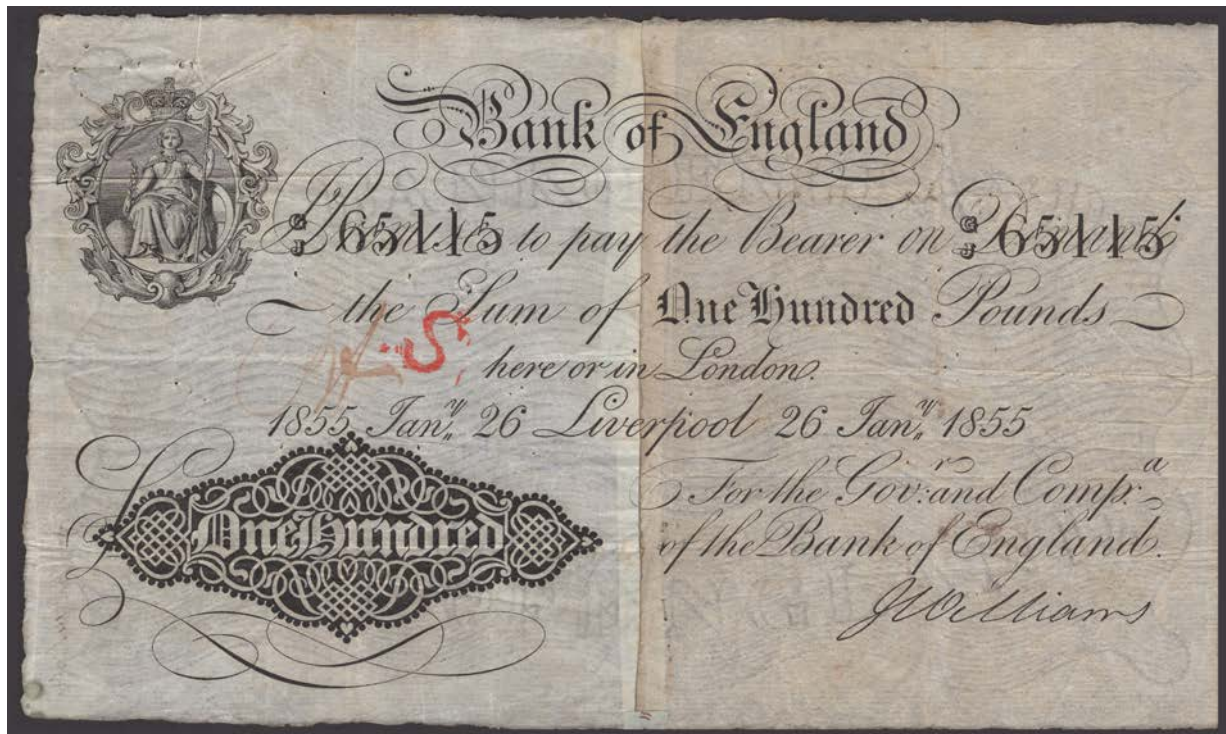 Bank of England
I Promise to pay the Bearer on Demand
G/J 65115 G/J 65115
the Sum of One Hundred Pounds
here or in London.
1855 Jan.y 26 Liverpool 26 Jan.y 1855
For the Gov:r and Comp:a
of the Bank of England.
One Hundred
J Williams
S